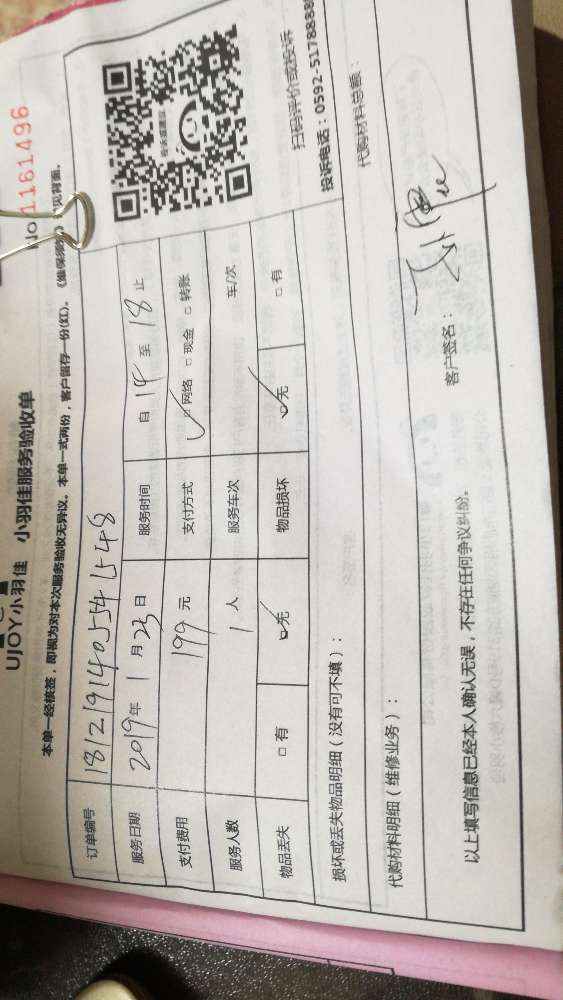 UJOY小羽佳 小羽佳服务验收单
No 1161496
本单一经核签,即视为对本次服务验收无异议。本单一式两份,客户留存一份(红)。《维保须知》见背面。
订单编号 1812191405541548
服务日期 2019年 1月 23日 服务时间 自 14 至 18 止
支付费用 199 元 支付方式 ☑网络 □现金 □转账
服务人数 1 人 服务车次 车/次
物品丢失 □有 ☑无 物品损坏 ☑无 □有
扫码评价或投诉
投诉电话:0592-5178888
损坏或丢失物品明细(没有可不填):
代购材料明细(维修业务): 代购材料总额:
以上填写信息已经本人确认无误,不存在任何争议纠纷。 客户签名: